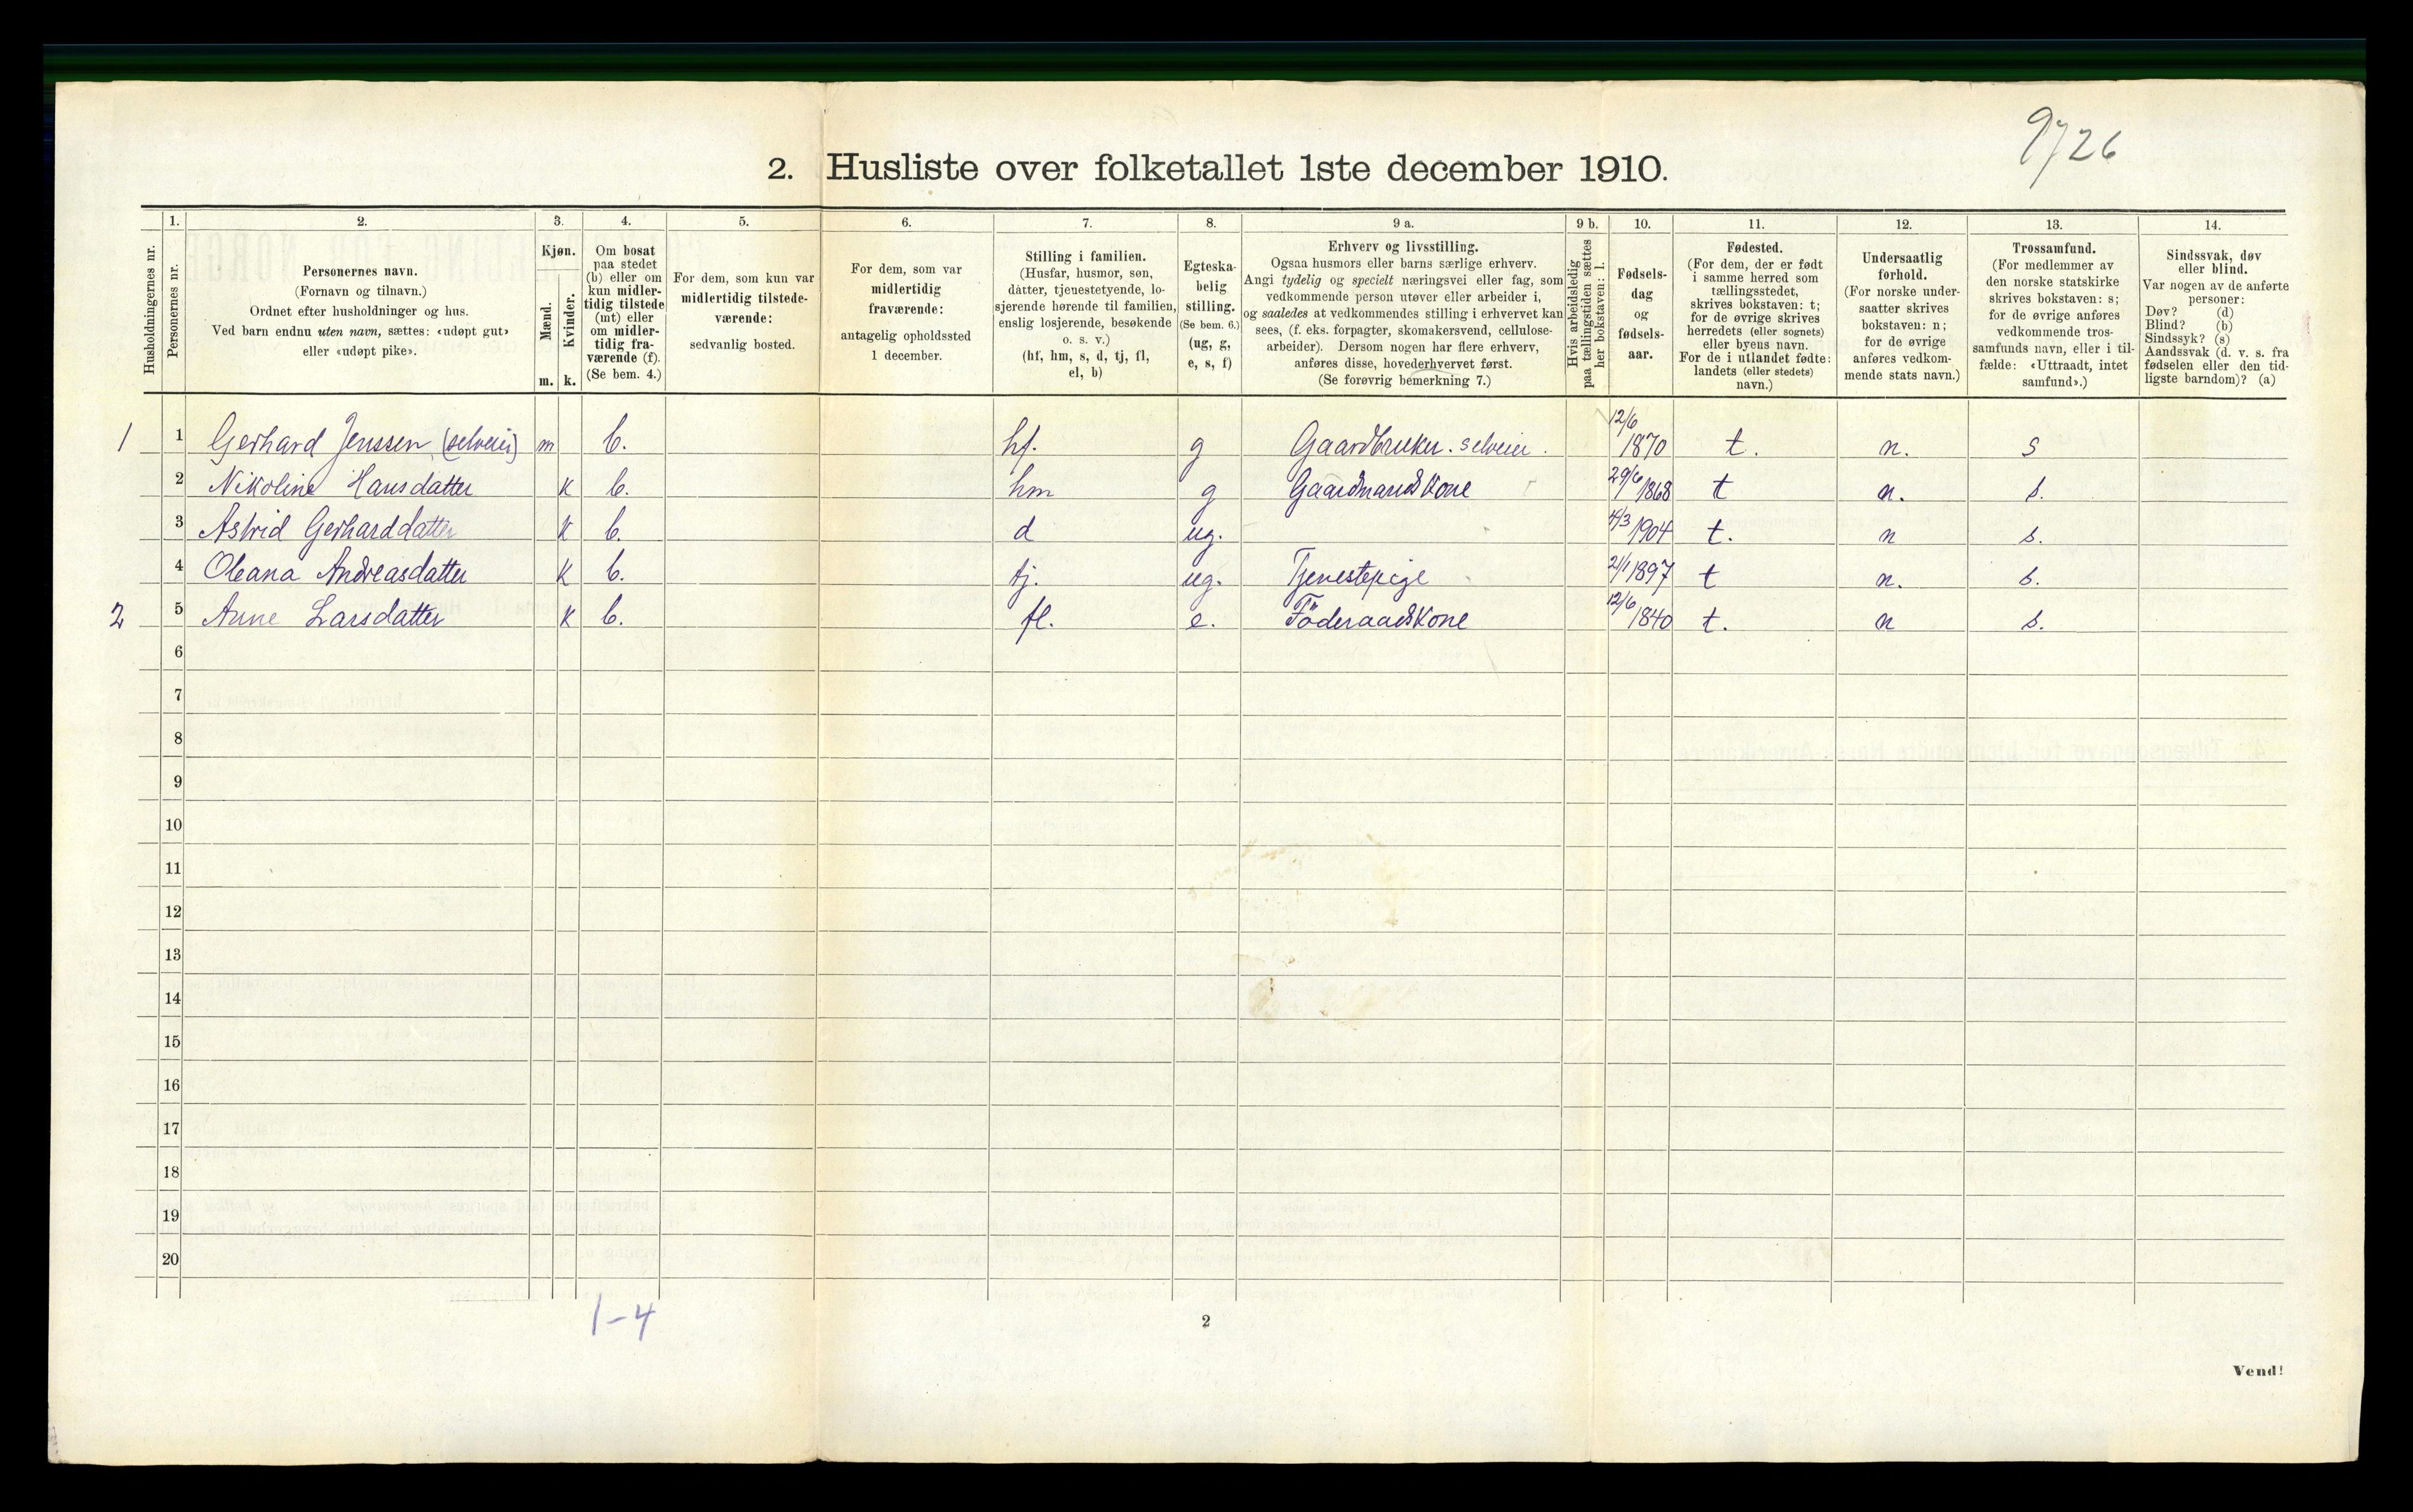 9726
2. Husliste over folketallet 1ste december 1910.
Husholdningernes nr.
1.
Personernes nr.
2.
Personernes navn.
(Fornavn og tilnavn.)
Ordnet efter husholdninger og hus.
Ved barn endnu uten navn, sættes: «udøpt gut»
eller «udøpt pike».
3.
Kjøn.
Mænd.
m.
Kvinder.
k.
4.
Om bosat
paa stedet
(b) eller om
kun midler-
tidig tilstede
(mt) eller
om midler-
tidig fra-
værende (f).
(Se bem. 4.)
5.
For dem, som kun var
midlertidig tilstede-
værende:
sedvanlig bosted.
6.
For dem, som var
midlertidig
fraværende:
antagelig opholdssted
1 december.
7.
Stilling i familien.
(Husfar, husmor, søn,
datter, tjenestetyende, lo-
sjerende hørende til familien,
enslig losjerende, besøkende
o. s. v.)
(hf, hm, s, d, tj, fl,
el, b)
8.
Egteska-
belig
stilling.
(Se bem. 6.)
(ug, g,
e, s, f)
9 a.
Erhverv og livsstilling.
Ogsaa husmors eller barns særlige erhverv.
Angi tydelig og specielt næringsvei eller fag, som
vedkommende person utøver eller arbeider i,
og saaledes at vedkommendes stilling i erhvervet kan
sees, (f. eks. forpagter, skomakersvend, cellulose-
arbeider). Dersom nogen har flere erhverv,
anføres disse, hovederhvervet først.
(Se forøvrig bemerkning 7.)
9 b.
Hvis arbeidsledig
paa tællingstiden sættes
her bokstaven: l.
10.
Fødsels-
dag
og
fødsels-
aar.
11.
Fødested.
(For dem, der er født
i samme herred som
tællingsstedet,
skrives bokstaven: t;
for de øvrige skrives
herredets (eller sognets)
eller byens navn.
For de i utlandet fødte:
landets (eller stedets)
navn.)
12.
Undersaatlig
forhold.
(For norske under-
saatter skrives
bokstaven: n;
for de øvrige
anføres vedkom-
mende stats navn.)
13.
Trossamfund.
(For medlemmer av
den norske statskirke
skrives bokstaven: s;
for de øvrige anføres
vedkommende tros-
samfunds navn, eller i til-
fælde: «Uttraadt, intet
samfund».)
14.
Sindssvak, døv
eller blind.
Var nogen av de anførte
personer:
Døv? (d)
Blind? (b)
Sindssyk? (s)
Aandssvak (d. v. s. fra
fødselen eller den tid-
ligste barndom)? (a)
1 1 Gerhard Jenssen (selveier) m b. hf. g Gaardbruker. selveier. 12/6 1870 t. n. s
2 Nikoline Hansdatter k b. hm g Gaardmandskone 29/6 1868 t n. s.
3 Astrid Gerharddatter k b. d ug. 4/3 1904 t. n s.
4 Oleana Andreasdatter k b. tj. ug. Tjenestepige 21/1 1897 t n. s.
2 5 Anne Larsdatter k b. fl. e. Föderaadskone 12/6 1840 t. n s.
6
7
8
9
10
11
12
13
14
15
16
17
18
19
20
1-4
2
Vend!